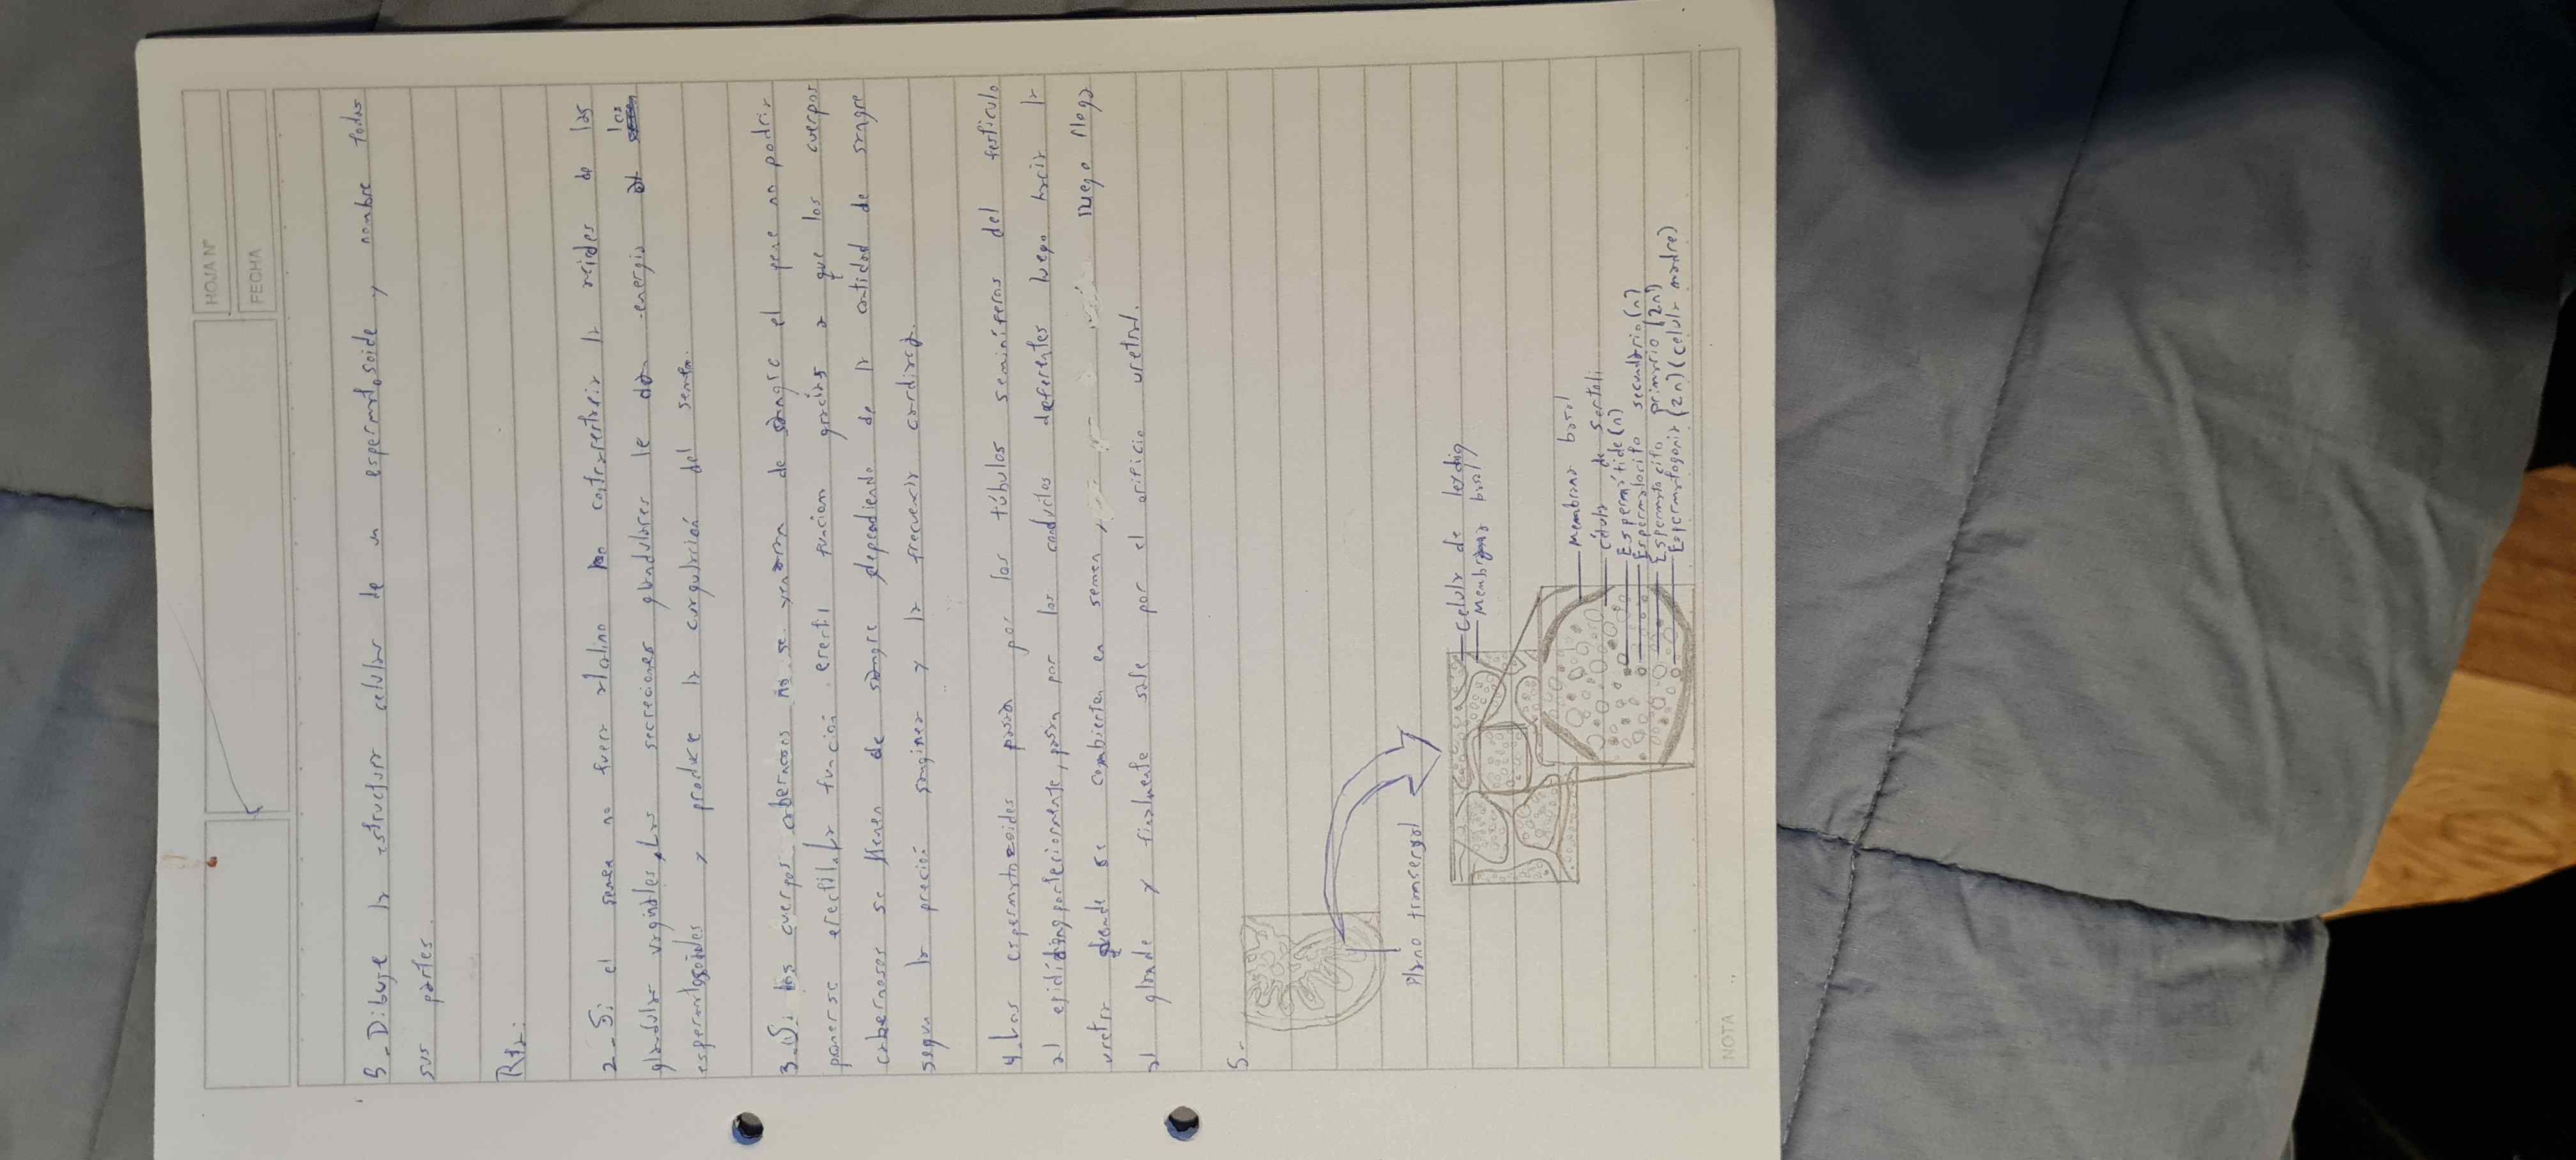 HOJA N°
FECHA
5_Dibuje la estructura celular de un espermatosoide y nombre todas
sus partes.
Rta:
2_Si el semen no fuera alcalino no contrarrestraria la acides de las
glandular vaginales, Las secreciones glandulares le dan energia a los
espermatosoides y produce la cuagulación del semen.
3_Si los cuerpos cabernosos no se llenaran de sangre el pene no podria
ponerse erectil, la función erectil funcion gracias a que los cuerpos
cabernosos se llenen de sangre dependiendo de la cantidad de sangre
segun la preción sanginea y la frecuencia cardiaca.
4_Los espermatozoides pasan por los túbulos seminíferos del testiculo
al epidídimo, posteriormente pasa por los conductos deferentes luego hacia la
uretra donde se combierten en semen, luego llega
al glande y finalmente sale por el orificio uretral.
5-
Plano transversal
Celula de leydig
Membrana basal
Membrana basal
Célula de sertoli
Espermátide (n)
Espermatocito secundario (n)
Espermatocito primario (2n)
Espermatogonia (2n) (celula madre)
NOTA